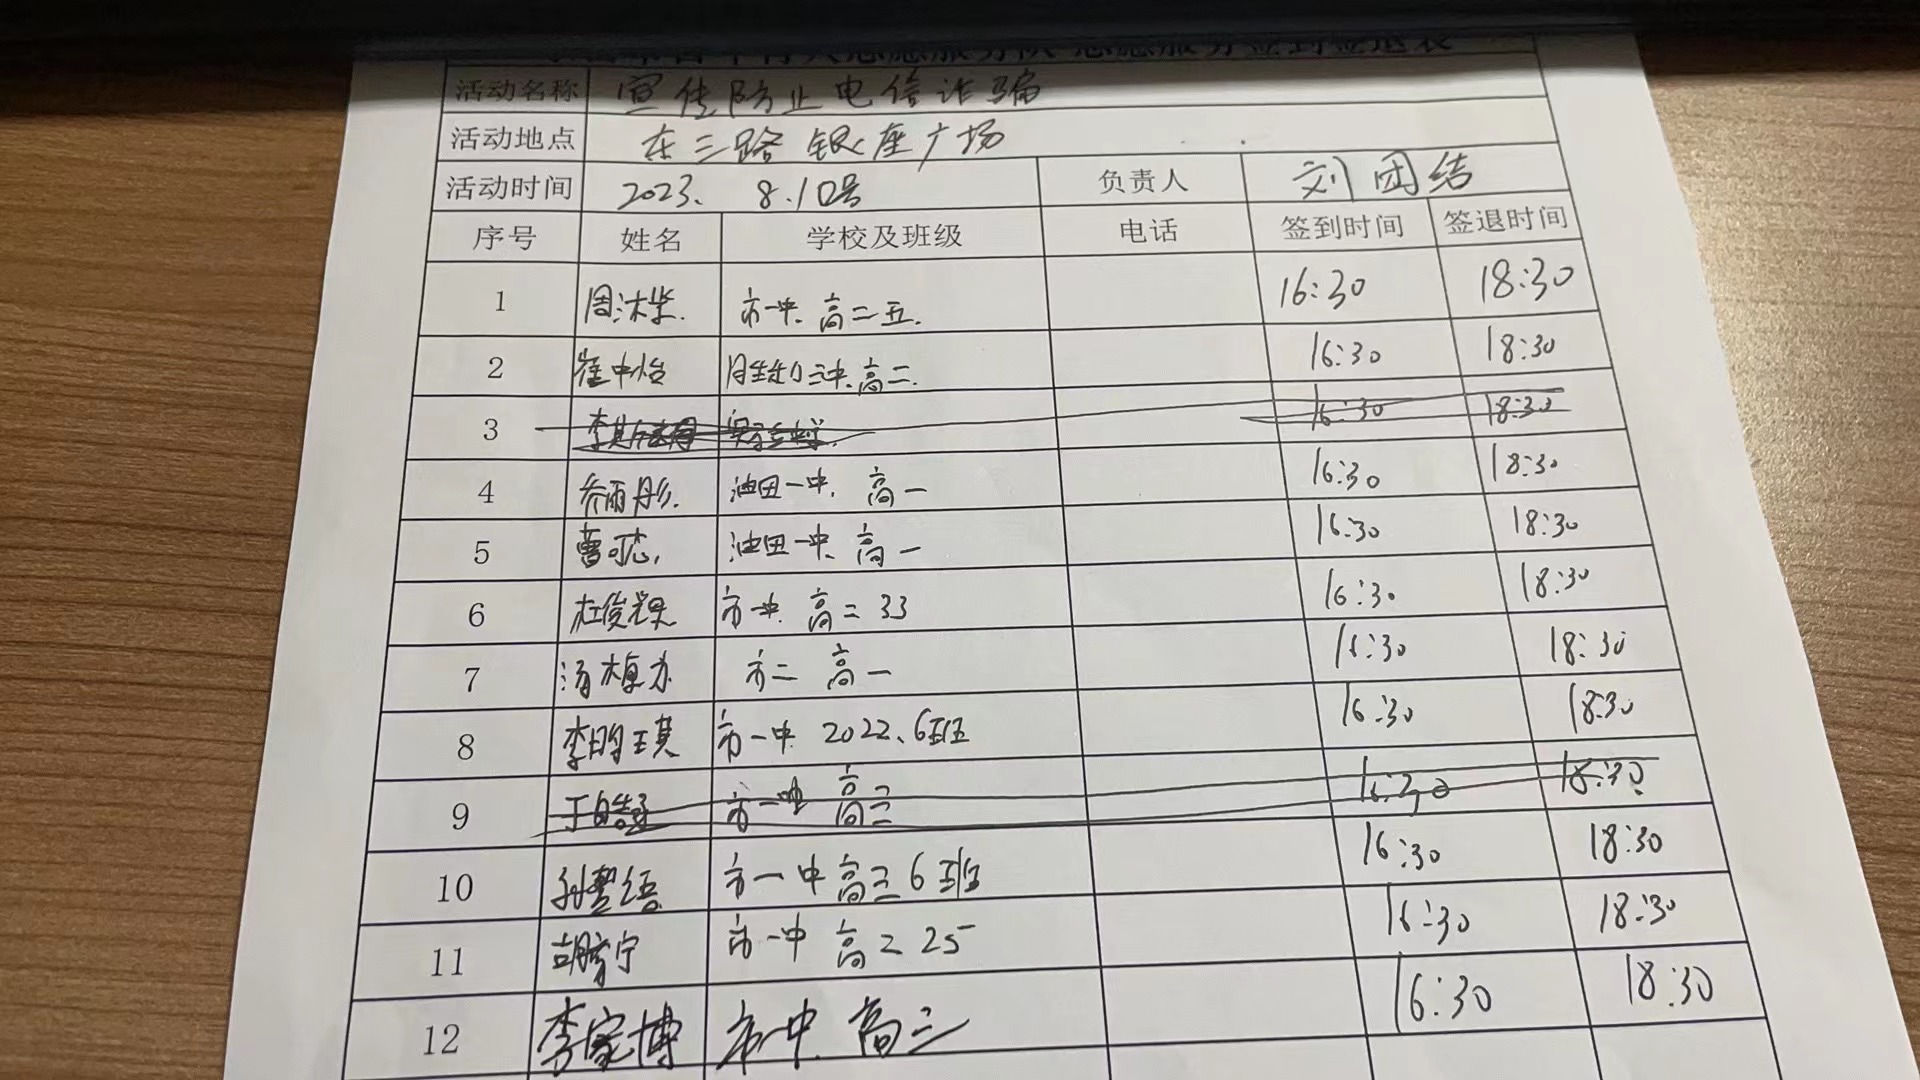 活动名称 宣传防止电信诈骗
活动地点 东三路银座广场
活动时间 2023. 8.10号 负责人 刘团结
序号 姓名 学校及班级 电话 签到时间 签退时间
1 周沐 市一中. 高二五. 16:30 18:30
2 崔中怡 胜利三中. 高二. 16:30 18:30
3 16:30 18:30
4 乔雨彤. 油田一中. 高一 16:30 18:30
5 曹可 油田一中. 高一 16:30 18:30
6 杜俊 市一中. 高二 33 16:30 18:30
7 汤 市二 高一 16:30 18:30
8 李昀琪 市一中 2022.6班 16:30 18:30
9 于皓 市一中 高二 16:30 18:30
10 孙 语 市一中 高三6班 16:30 18:30
11 胡 宁 市一中 高二 25 16:30 18:30
12 李家博 市一中. 高三 16:30 18:30